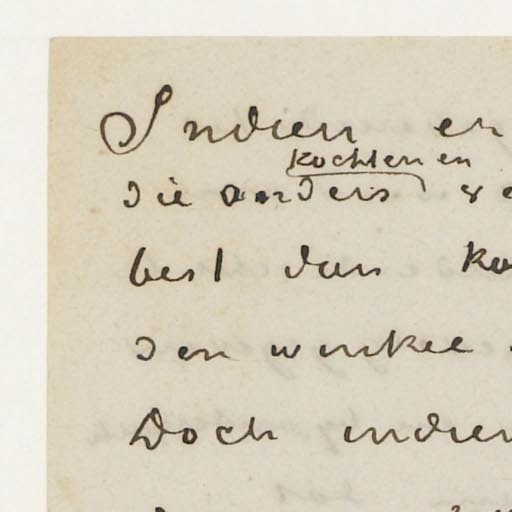 Indien er
kochten en
die anders
best dan
den winkel
Doch indien